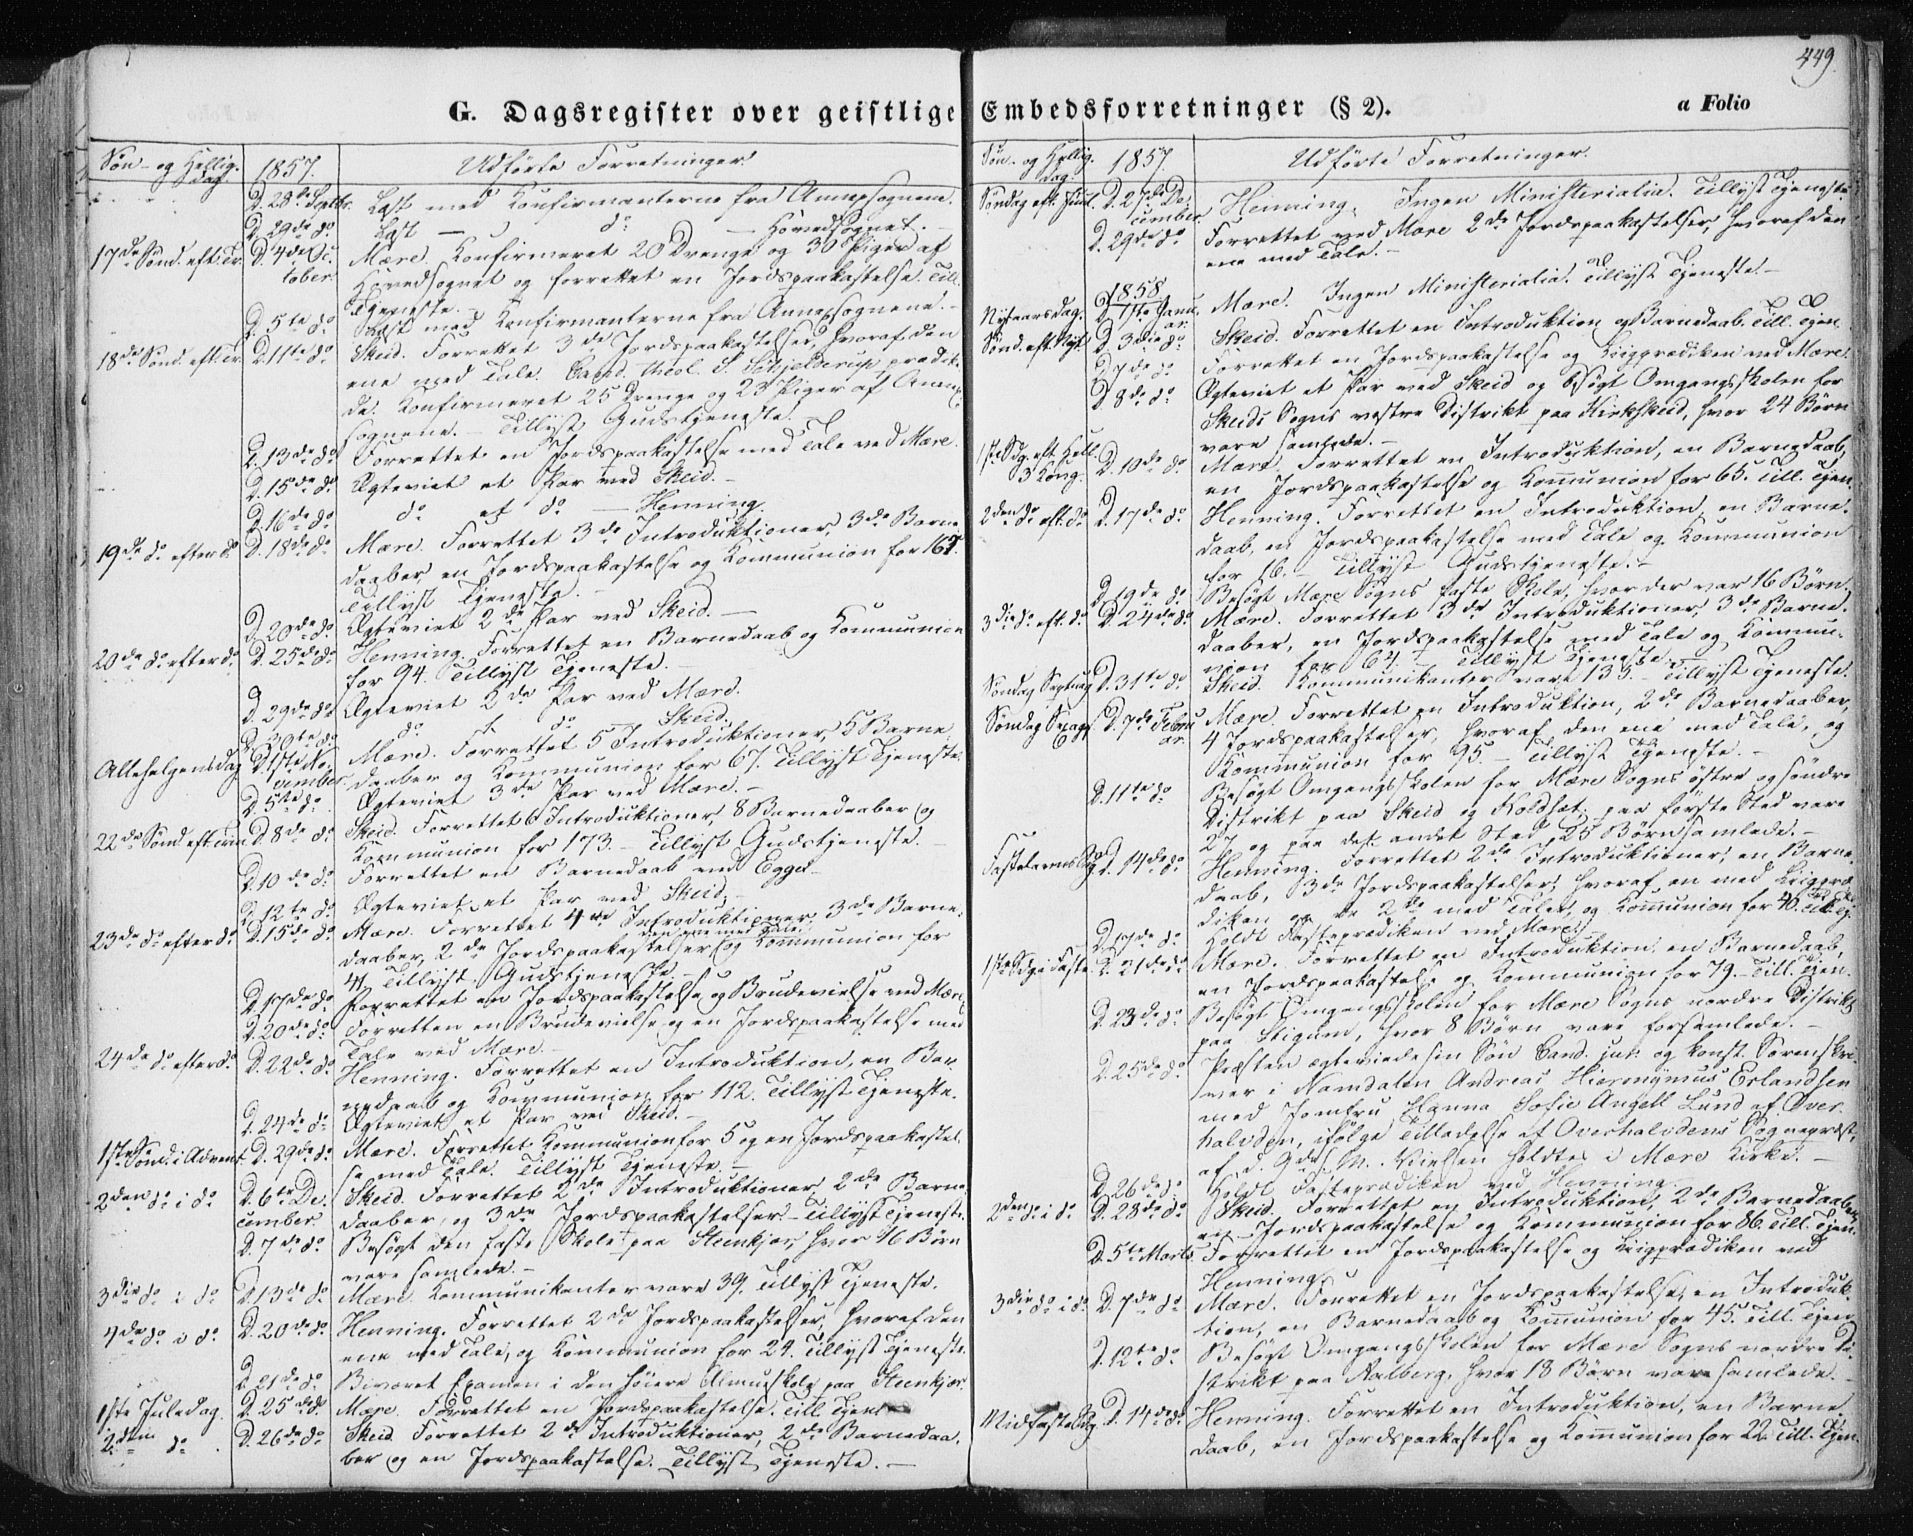 449.
G. Dagsregister over geistlige Embedsforretninger (§ 2).
a Folio
Søn- og Hellig-dag. 1857. Udførte Forretninger.
D. 28de Septbr. Læst med Konfirmanterne fra Annexsognene.
D. 29de do Læst — " — do — Hovedsognet. —
17de Sønd. eft. Tr. D. 4de October. Mære. Konfirmeret 20 Drenge og 30 Piger af
Hovedsognet og forrettet en Jordspaakastelse. Till.
Tjeneste.
D. 5te do Læst med Konfirmanterne fra Annexsognene. —
18de Sønd. eft. Tr. D. 11te do Skeid. Forrettet 3de Jordspaakastelser, hvoraf den
ene med Tale. Cand. theol. S. Schjelderup prædike-
de. Konfirmeret 25 Drenge og 23 Piger af Annex-
sognene. — Tillyst Gudstjeneste. —
D. 13de do Forrettet en Jordspaakastelse med Tale ved Mære.
D. 15de do Ægteviet et Par ved Skeid. —
D. 16de do do et do — Henning.
19de do efter do D. 18de do Mære. Forrettet 3de Introduktioner, 3de Barne-
daaber, en Jordspaakastelse og Kommunion for
Tillyst Tjeneste. —
D. 20de do Ægteviet 2de Par ved Skeid. —
20de do efter do D. 25de do Henning. Forrettet en Barnedaab og Kommunion
for 94. Tillyst Tjeneste. —
D. 29de do Ægteviet 2de Par ved Mære.
D. 30te do do do Skeid.
Allehelgensdag D. 1ste November Mære. Forrettet 5 Introduktioner, 5 Barne-
daaber og Kommunion for 67. Tillyst Tjeneste.
D. 5te do Ægteviet 3de Par ved Mære. —
22de Sønd. eft. Trin. D. 8de do Skeid. Forrettet 6 Introduktioner, 8 Barnedaaber og
Kommunion for 173. — Tillyst Gudstjeneste. —
D. 10de do Forrettet en Barnedaab ved Egge. —
D. 12te do Ægteviet et Par ved Skeid. —
23de do efter do D. 15de do Mære. Forrettet 4de Introduktioner, 3de Barne-
den ene med Tale
daaber, 2de Jordspaakastelser og Kommunion for
41. Tillyst Gudstjeneste. —
D. 17de do Forrettet en Jordspaakastelse og Brudevielse ved Mære.
D. 20de do Forretten en Brudevielse og en Jordspaakastelse med
Tale ved Mære. —
24de do efter do D. 22de do Henning. Forrettet en Introduktion, en Bar-
nedaab og Kommunion for 112. Tillyst Tjeneste.
D. 24de do Ægteviet et Par ved Skeid. —
1ste Sønd. i Advent D. 29de do Mære. Forrettet Kommunion for 5 og en Jordspaakastel-
se med Tale. Tillyst Tjeneste. —
2den do i do D. 6te December. Skeid. Forrettet 2de Introduktioner, 2de Barne-
daaber, og 3de Jordspaakastelser. — Tillyst Tjeneste.
D. 7de do Besøgt den faste Skole paa Steenkjær, hvor 46 Børn
vare samlede. —
3die do i do D. 13de do Mære. Kommunikanter vare 39. Tillyst Tjeneste.
4de do i do D. 20de do Henning. Forrettet 2de Jordspaakastelser, hvoraf den
ene med Tale, og Kommunion for 24. Tillyst Tjeneste.
D. 21de do Bivaaret Examen i den høiere Almueskole paa Steenkjær.
1ste Juledag. D. 25de do Mære. Forrettet en Jordspaakastelse. Till. Tjene
2den do D. 26de do Skeid. Forrettet 2de Introduktioner, 2de Barnedaa-
ber og en Jordspaakastelse. Tillyst Tjeneste. —
Søn- og Hellig-dag. 1857 Udførte Forretninger.
Søndag eft. Juul. D. 27de December. Henning. Ingen Ministerialia. Tillyst Tjeneste.
D. 29de do Forrettet ved Mære 2de Jordspaakastelser, hvoraf den
ene med Tale. —
1858
Nytaarsdag. D. 1ste Januar. Mære. Ingen Ministerialia. Tillyst Tjeneste. —
Sønd. eft. Nyt. D. 3die do Skeid. Forrettet en Introduktion og Barnedaab. Till. Tjen.
D. 7de do Forrettet en Jordspaakastelse og Liigprædiken ved Mære.
D. 8de do Ægteviet et Par ved Skeid og besøgt Omgangsskolen for
Skeids Sogns vestre Distrikt paa Kirkskeid, hvor 24 Børn
vare samlede. —
1ste Sdg. eft. Hell. 3 Kong. D. 10de do Mære. Forrettet en Introduktion, en Barnedaab,
en Jordspaakastelse og Kommunion for 65. Till. Tjen.
2den do eft. do D. 17de do Henning. Forrettet en Introduktion, en Barne-
daab, en Jordspaakastelse med Tale og Kommunion
for 16. — Tillyst Gudstjeneste. —
D. 19de do Besøgt Mære Sogns faste Skole, hvor der var 16 Børn.
3die do eft. do D. 24de do Mære. Forrettet 3de Introduktioner, 3de Barne-
daaber, en Jordspaakastelse med Tale og Kommu-
nion for 67. — Tillyst Tjeneste. —
Søndag Septuag. D. 31te do Skeid. Kommunikanter vare 135. — Tillyst Tjeneste.
Søndag Sexag. D. 7de Februar. Mære. Forrettet en Introduktion, 2de Barnedaaber,
4 Jordspaakastelser, hvoraf den ene med Tale, og
Kommunion for 95. — Tillyst Tjeneste. —
D. 11te do Besøgt Omgangsskolen for Mære Sogns østre og søndre
Distrikt paa Skeid og Koldset; paa første Sted vare
27 og paa det andet Sted 25 Børn samlede. —
Fastelavns Sdg. D. 14de do Henning. Forrettet 2de Introduktioner, en Barne-
daab, 3de Jordspaakastelser, hvoraf en med Liigpræ-
diken og de 2de med Taler, og Kommunion for 40. Till. Tj.
D. 17de do Holdt Fasteprædiken ved Mære.
1ste Sdg. i Faste. D. 21de do Mære. Forrettet en Introduktion, en Barnedaab,
en Jordspaakastelse og Kommunion for 79. — Till. Tjen.
D. 23de do Besøgt Omgangsskolen for Mære Sogns nordre Distrikt
paa Stigum, hvor 8 Børn vare forsamlede. —
D. 25de do Præsten ægteviede sin Søn Cand. jur. og konst. Sorenskri-
ver i Namdalen Andreas Hieronymus Erlandsen
med Jomfru Hanna Sofie Angell Lund af Over-
halvden, ifølge Tilladelse af Overhalvdens Sognepræst,
af d. G. M. Vielsen holdtes i Mære Kirke. —
D. 26de do Holdt Fasteprædiken ved Henning.
2den do i do D. 28de do Skeid. Forrettet en Introduktion, 2de Barnedaaber,
en Jordspaakastelse og Kommunion for 86. Till. Tjen.
D. 5te Marts Forrettet en Jordspaakastelse og Liigprædiken ved
Henning.
3die do i do D. 7de do Mære. Forrettet en Jordspaakastelse, en Introduk-
tion, en Barnedaab og Kommunion for 45. Till. Tjen.
D. 12te do Besøgt Omgangsskolen for Mære Sogns nordre Di-
strikt paa Aalberg, hvor 18 Børn vare samlede. —
Midfaste Sdg. D. 14de do Henning. Forrettet en Introduktion, en Barne-
daab, en Jordspaakastelse og Kommunion for 22. Till. Tjen.